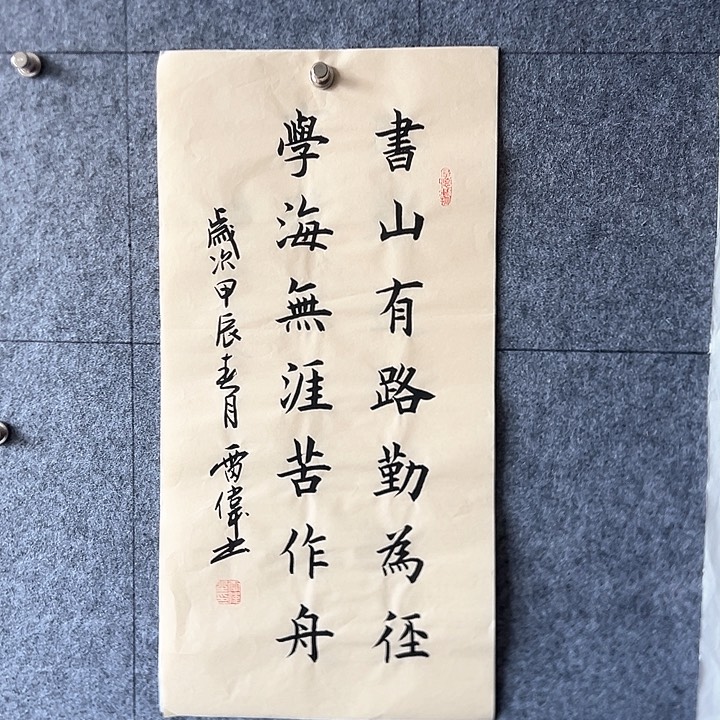 書山有路勤為徑
學海無涯苦作舟
歲次甲辰春月 雷偉书